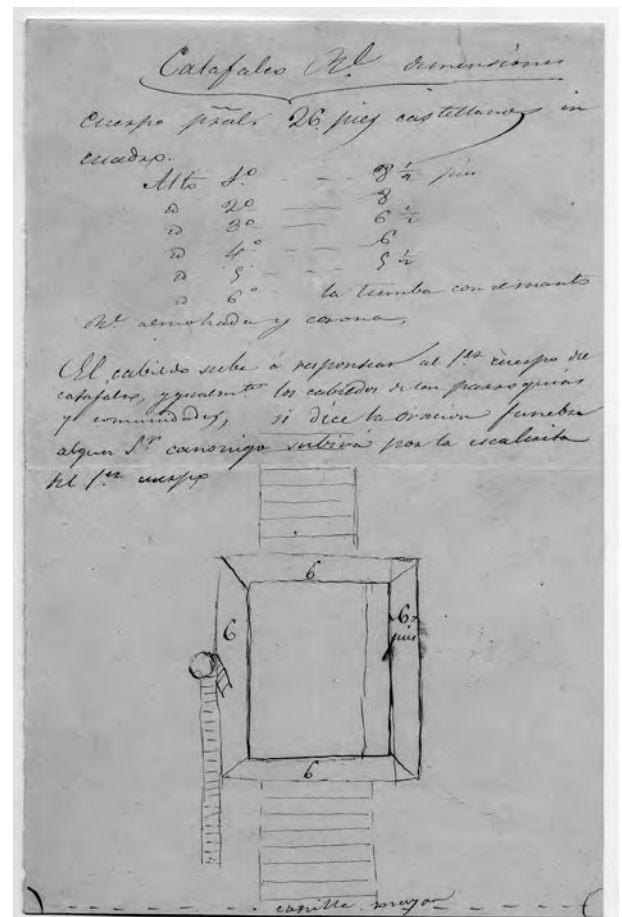 Catafalco Rl. dimensiones
cuerpo prãal. 26 pies castellanos in
cuadro.
Alto 1.º - - - 8 ½ pies
id 2º — 8
id 3º — 6 ½
id 4.º - - 6
id 5 - - - 5 ½
id 6º la tumba con el manto
Rl. almohada y corona,
El cabildo sube á responsear al 1.er cuerpo de
catafalco, y ygualm.te los cabildos de las parroquias
y comunidades, si dice la oracion funebre
algun S.r canonigo subira por la escalerita
del 1.er cuerpo
6
6
6
pies
6
capilla mayor